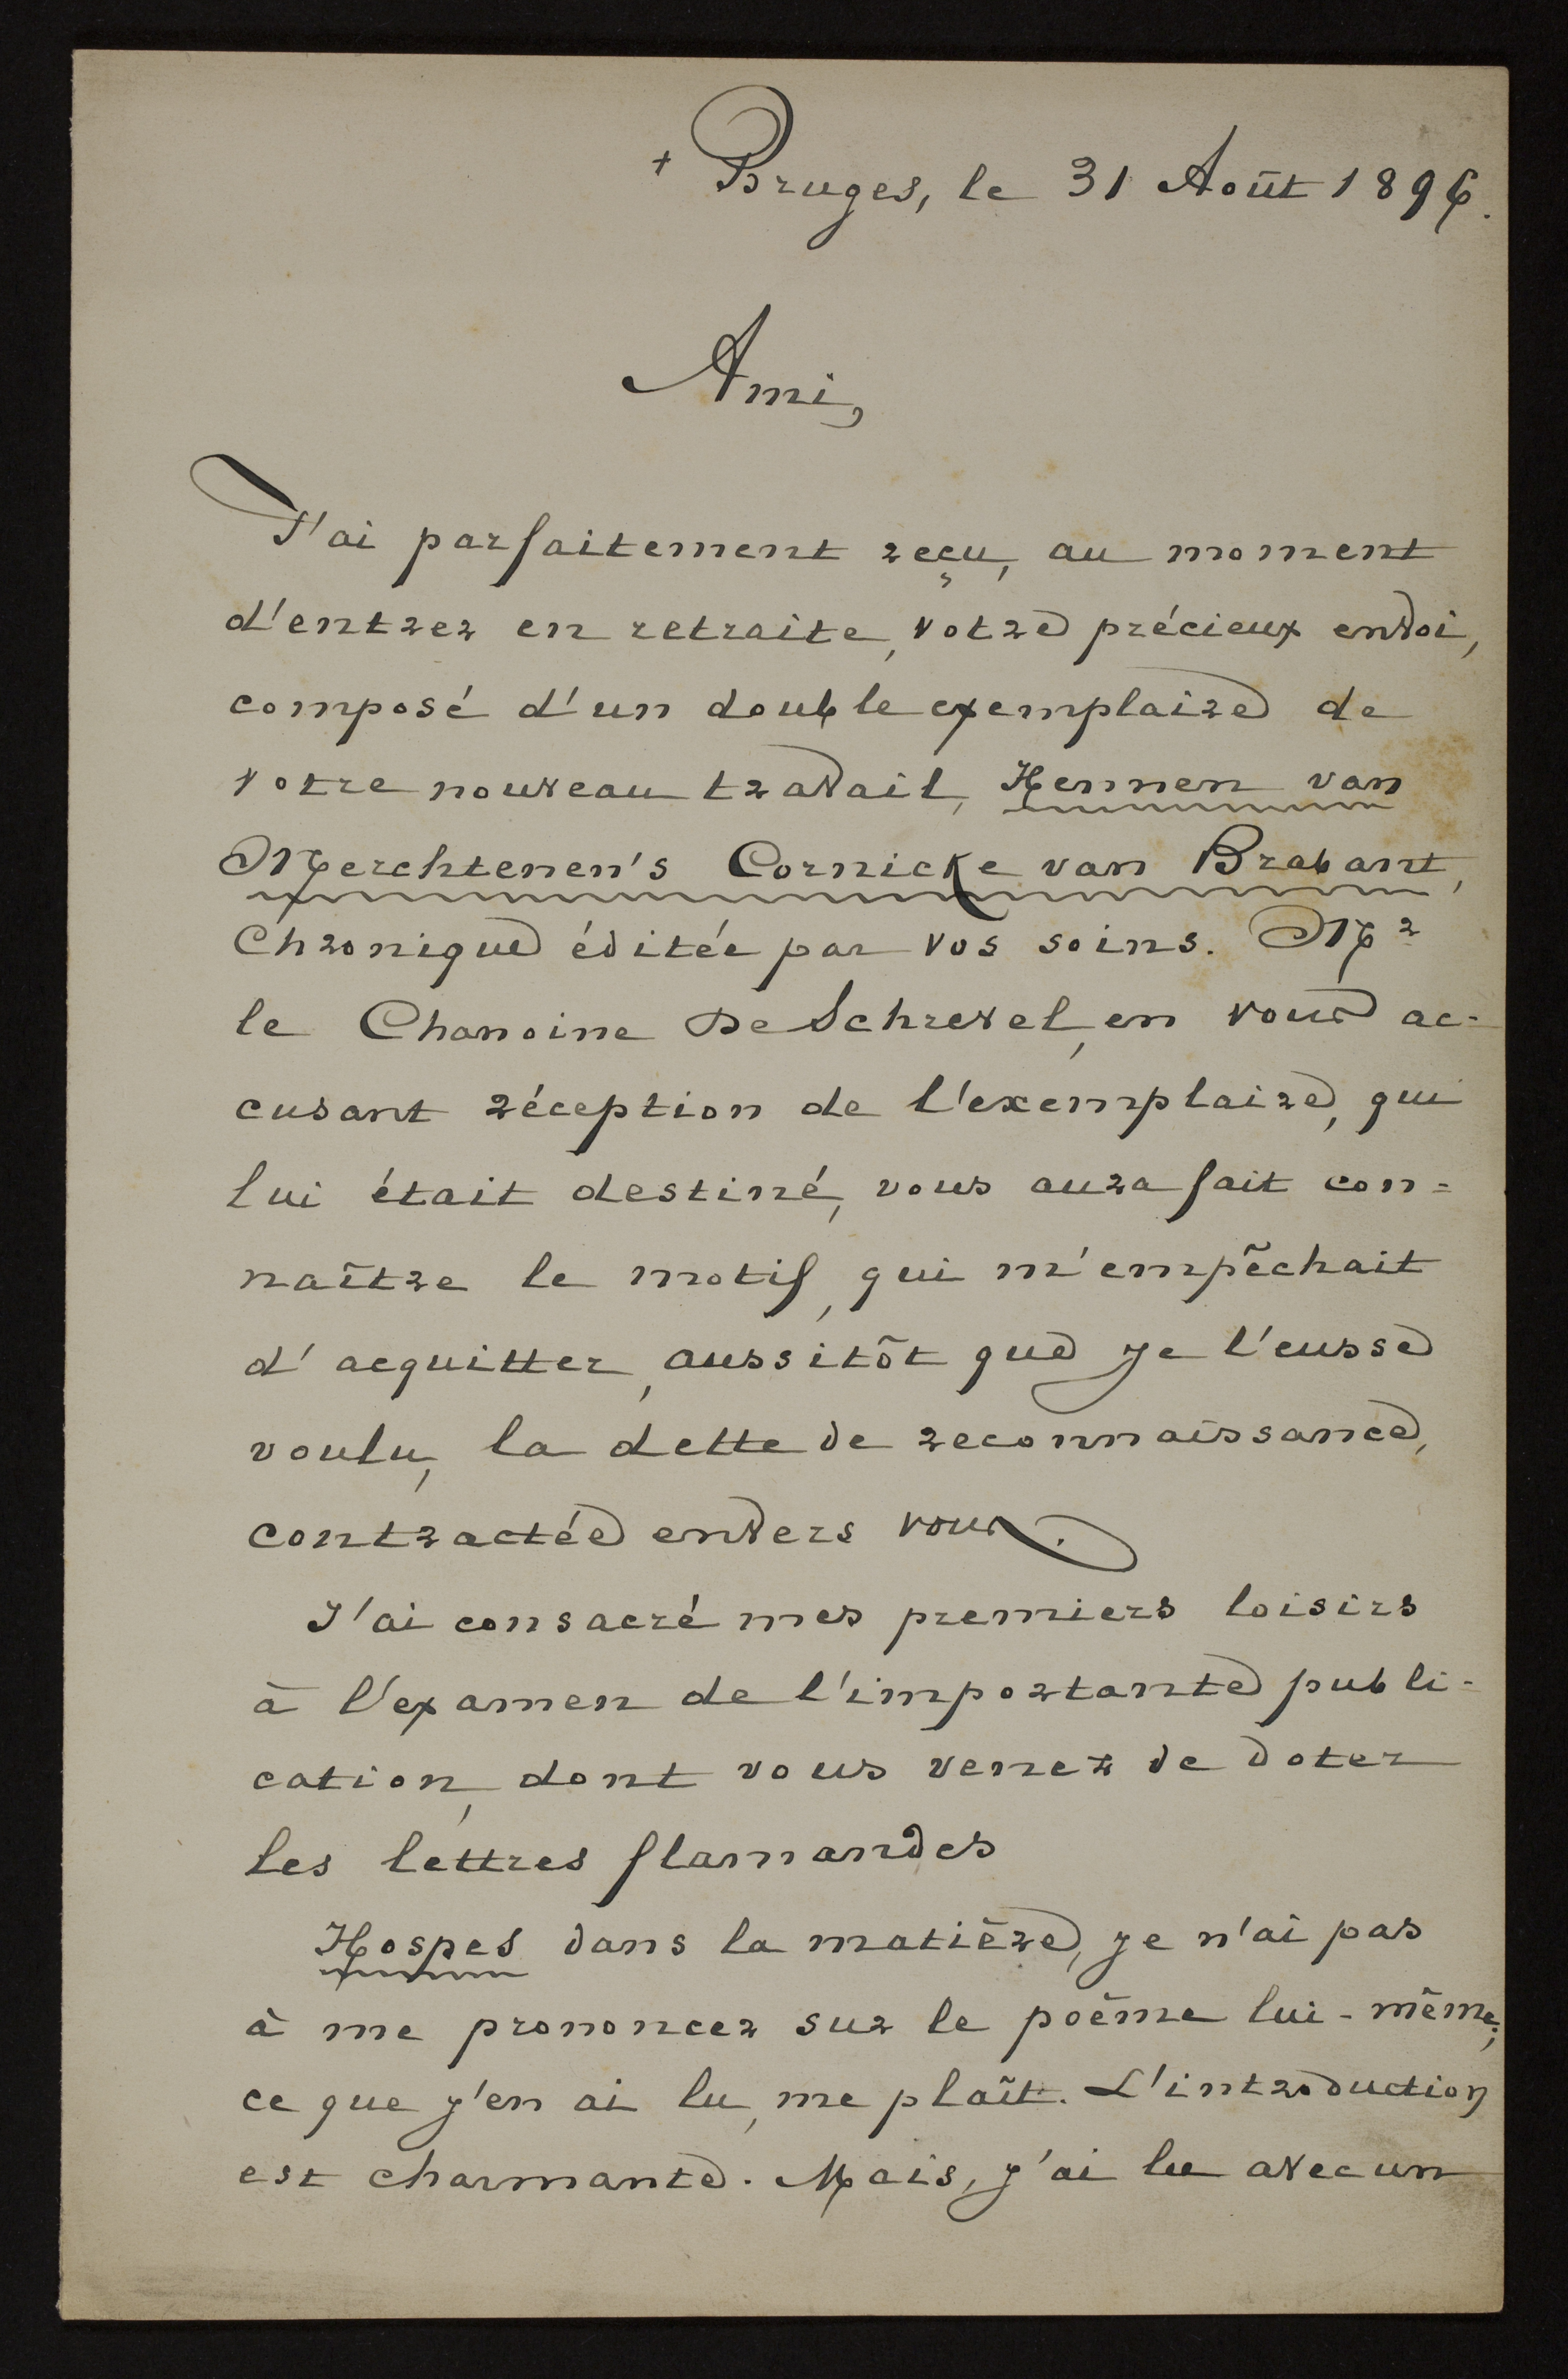 + Bruges, le 31 Août 1896.
Ami,
J'ai parfaitement reçu, au moment
d'entrer en retraite, votre précieux envoi,
composé d'un double exemplaire de
votre nouveau travail, Hennen van
Merchtenen's Cornicke van Brabant,
Chronique éditée par vos soins. Mr
le Chanoine De Schrevel, en vous ac-
cusant réception de l'exemplaire, qui
lui était destiné, vous aura fait con=
naître le motif, qui m'empêchait
d'acquitter, aussitôt que je l'eusse
voulu, la dette de reconnaissance,
contractée envers vous.
J'ai consacré mes premiers loisirs
à l'examen de l'importante publi-
cation, dont vous venez de doter
les lettres flamandes
Hospes dans la matière, je n'ai pas
à me prononcer sur le poème lui-même;
ce que j'en ai lu, me plaît. L'introduction
est charmante. Mais, j'ai lu avec un